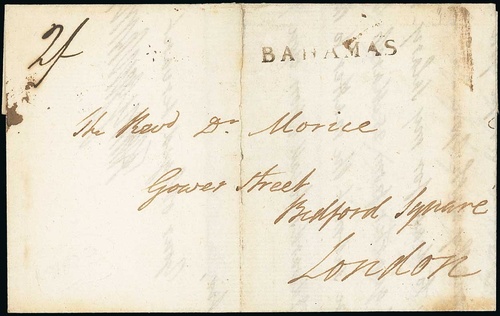 2/
BAHAMAS
The Revd Dr Morice
Gower Street
Bedford Square
London